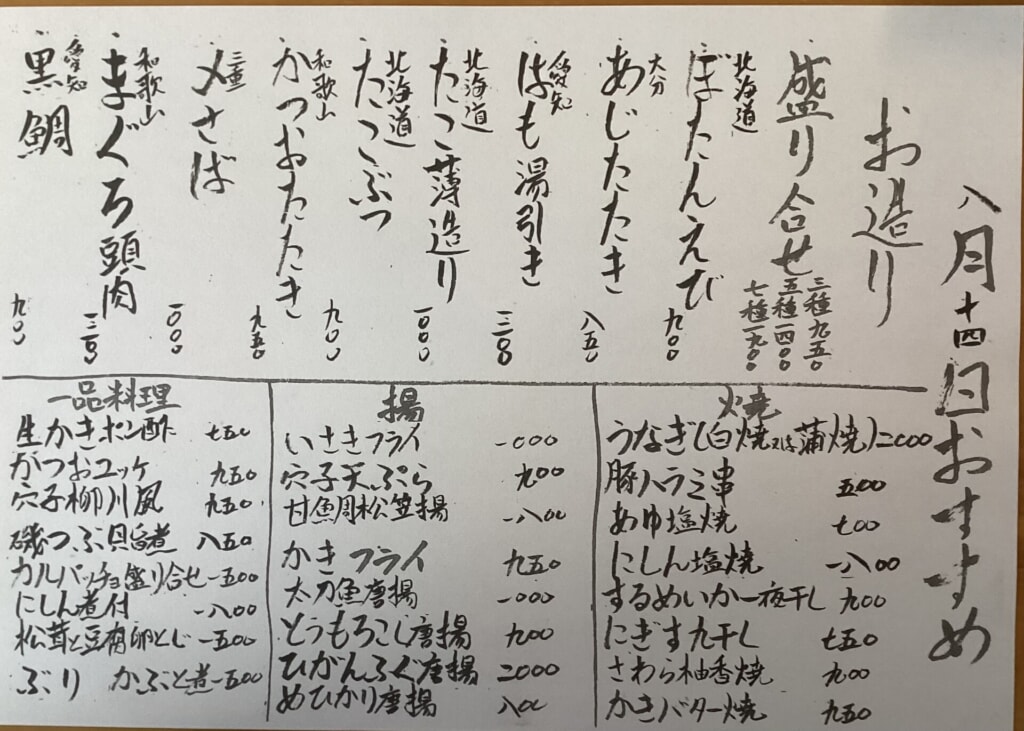 八月十四日おすすめ
お造り
盛り合せ
三種九五〇
五種一四〇〇
七種一九〇〇
北海道
ぼたんえび
九〇〇
大分
あじたたき
八五〇
愛知
はも湯引き
一三〇〇
北海道
たこ薄造り
一〇〇〇
北海道
たこぶつ
九〇〇
和歌山
かつおたたき
九五〇
三重
〆さば
一〇〇〇
和歌山
まぐろ頭肉
一三〇〇
愛知
黒鯛
九〇〇
焼
うなぎ(白焼又は蒲焼)二〇〇〇
豚ハラミ串 五〇〇
あゆ塩焼 七〇〇
にしん塩焼 一八〇〇
するめいか一夜干し 九〇〇
にぎす丸干し 七五〇
さわら柚香焼 九〇〇
かきバター焼 九五〇
揚
いさきフライ 一〇〇〇
穴子天ぷら 九〇〇
甘鯛松笠揚 一八〇〇
かきフライ 九五〇
太刀魚唐揚 一〇〇〇
とうもろこし唐揚 九〇〇
ひがんふぐ唐揚 二〇〇〇
めひかり唐揚 八〇〇
一品料理
生かきポン酢 七五〇
かつおユッケ 九五〇
穴子柳川風 九五〇
磯つぶ貝旨煮 八五〇
カルパッチョ盛り合せ 一五〇〇
にしん煮付 一八〇〇
松茸と豆腐卵とじ 一五〇〇
ぶり かぶと煮 一五〇〇